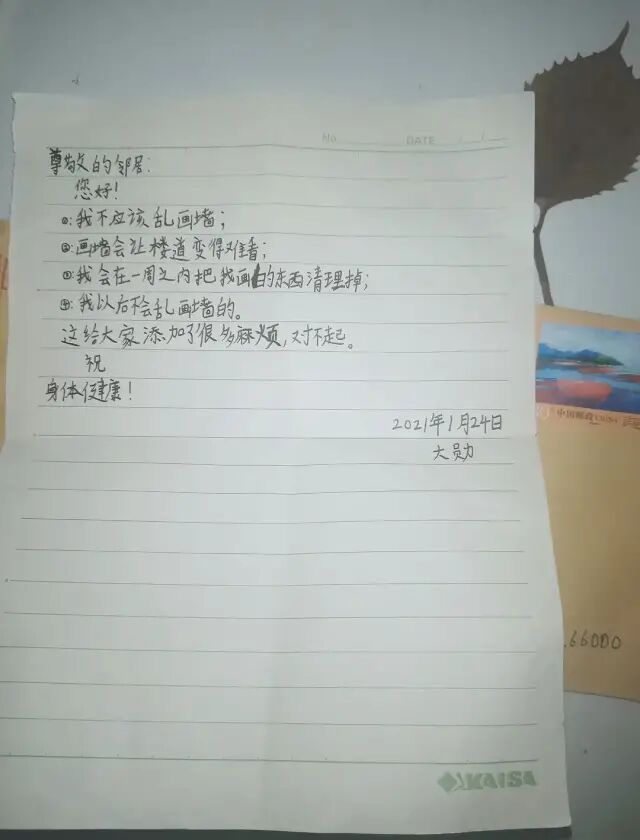 No. DATE / /
尊敬的邻居:
您好!
①:我不应该乱画墙;
②:画墙会让楼道变得难看;
③:我会在一周之内把我画的东西清理掉;
④:我以后不会乱画墙的。
这给大家添加了很多麻烦,对不起。
祝
身体健康!
2021年1月24日
大勋
中国邮政 CHINA
66000
KAISA